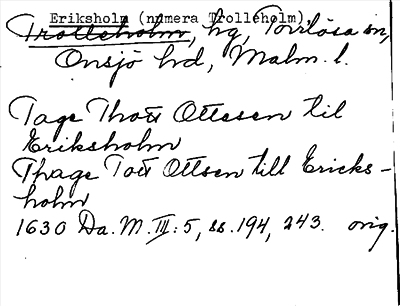 Eriksholm (numera Trolleholm)
Trolleholm, hg, Torrlösa sn,
Onsjö hd, Malm. l.
Tage Thott Ottesen til
Eriksholm
Thage Tott Ottsen till Ericks-
holm
1630 Da. M. III: 5, ss. 194, 243. orig.